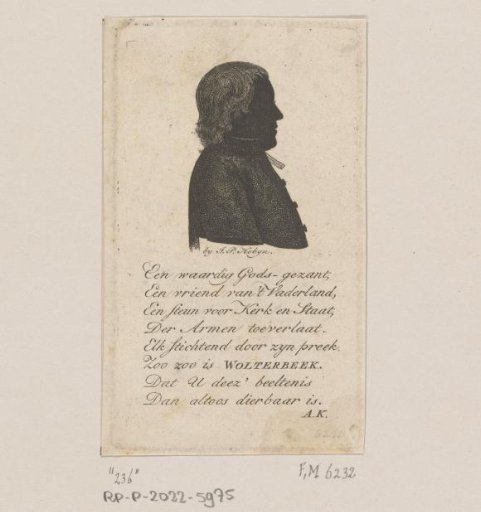 by J. P. Hobyn.
Een waardig Gods-gezant,
Een vriend van 't Vaderland,
Een steun voor Kerk en Staat,
Der Armen toeverlaat.
Elk stichtend door zyn preek.
Zoo zoo is WOLTERBEEK.
Dat U deez' beeltenis
Dan altoos dierbaar is.
A.K.
"236"
F,M 6232
RP-P-2022-5975